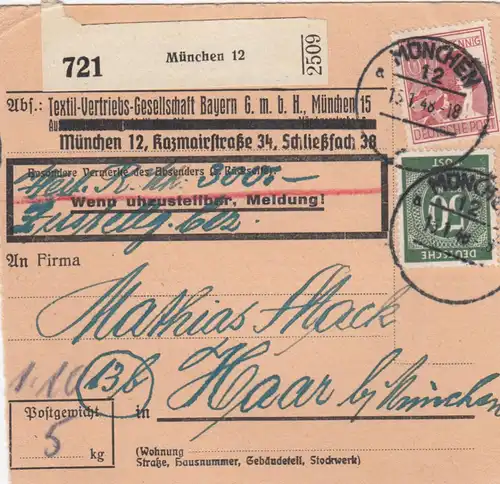 721
München 12
2509
Abs.: Textil-Vertriebs-Gesellschaft Bayern G. m. b. H., München 15
München 12, Kazmairstraße 34, Schließfach 38
Besondere Vermerke des Absenders s. Rückseite
300,-
Wenn unzustellbar, Meldung!
Zustellg. bez.
An Firma
Mathias Mack
1.10
13b
in Haar bei München
Postgewicht
5 kg
(Wohnung
Straße, Hausnummer, Gebäudeteil, Stockwerk)
MÜNCHEN
a 12
15.1.48.18
DEUTSCHE POST
MÜNCHEN
a 12
DEUTSCHE
POST